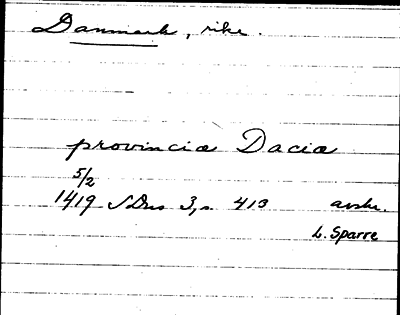 Danmark, rike.
provincia Dacia
5/2
1419 SDns 3, s. 413 avskr.
L. Sparre